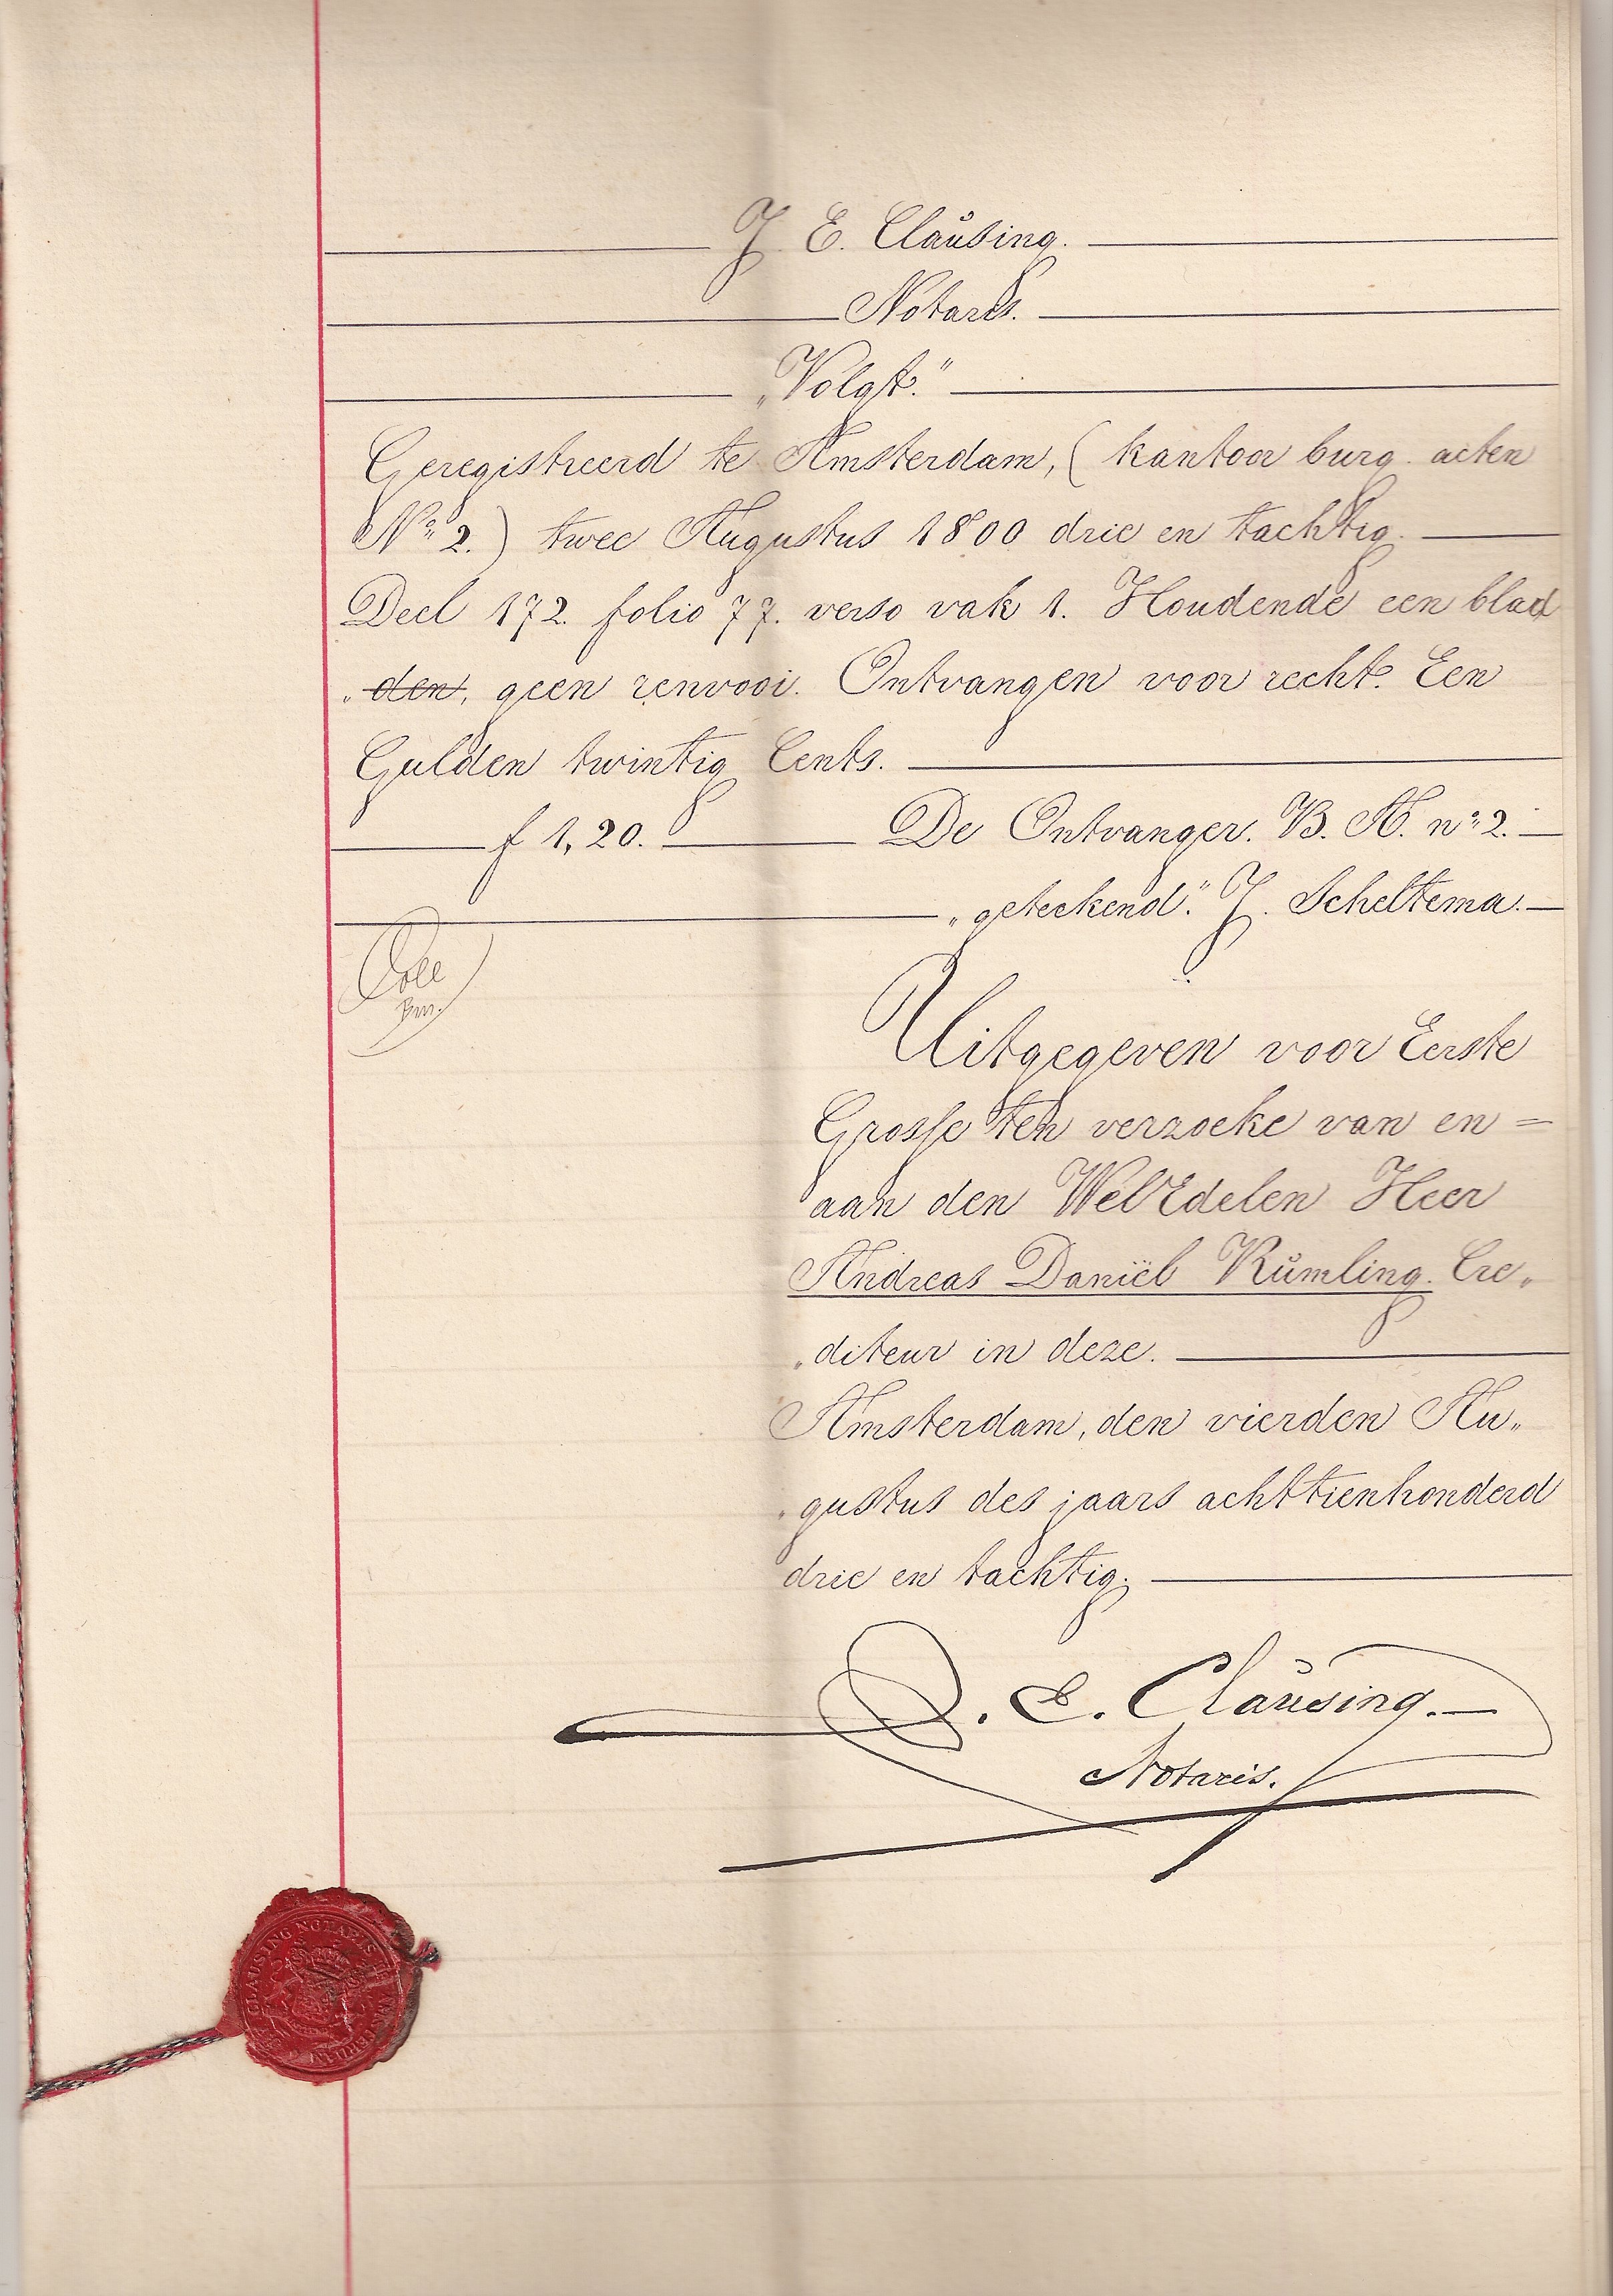 J. E. Claŭsing.
Notaris.
„Volgt."
Geregistreerd te Amsterdam, (kantoor burg. acten
No 2.) twee Augustus 1800 drie en tachtig.
Deel 172. folio 77. verso vak 1. Houdende een blad
„den, geen renvooi. Ontvangen voor recht. Een
Gulden twintig Cents.
f 1,20. De Ontvanger. B. A. no 2.
„geteekend." J. Scheltema.
Coll
Uitgegeven voor Eerste
Grosse ten verzoeke van en =
aan den WelEdelen Heer
Andreas Daniël Rŭmling. Cre„
„diteur in deze.
Amsterdam, den vierden Au„
„gustus des jaars achttienhonderd
drie en tachtig.
J. E. Claŭsing.
Notaris.
CLAUSING NOTARIS